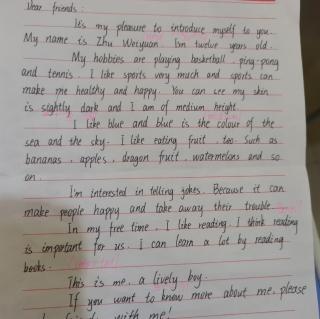 Dear friends:
It's my pleasure to introduce myself to you.
My name is Zhu Weiyuan. I'm twelve years old.
My hobbies are playing basketball, ping-pong
and tennis. I like sports very much and sports can
make me healthy and happy. You can see my skin
is slightly dark and I am of medium height.
I like blue and blue is the colour of the
sea and the sky. I like eating fruit, too. Such as
bananas, apples, dragon fruit, watermelons and so
on.
I'm interested in telling jokes. Because it can
make people happy and take away their trouble.
In my free time, I like reading. I think reading
is important for us. I can learn a lot by reading
books.
This is me, a lively boy.
If you want to know more about me, please
with me!